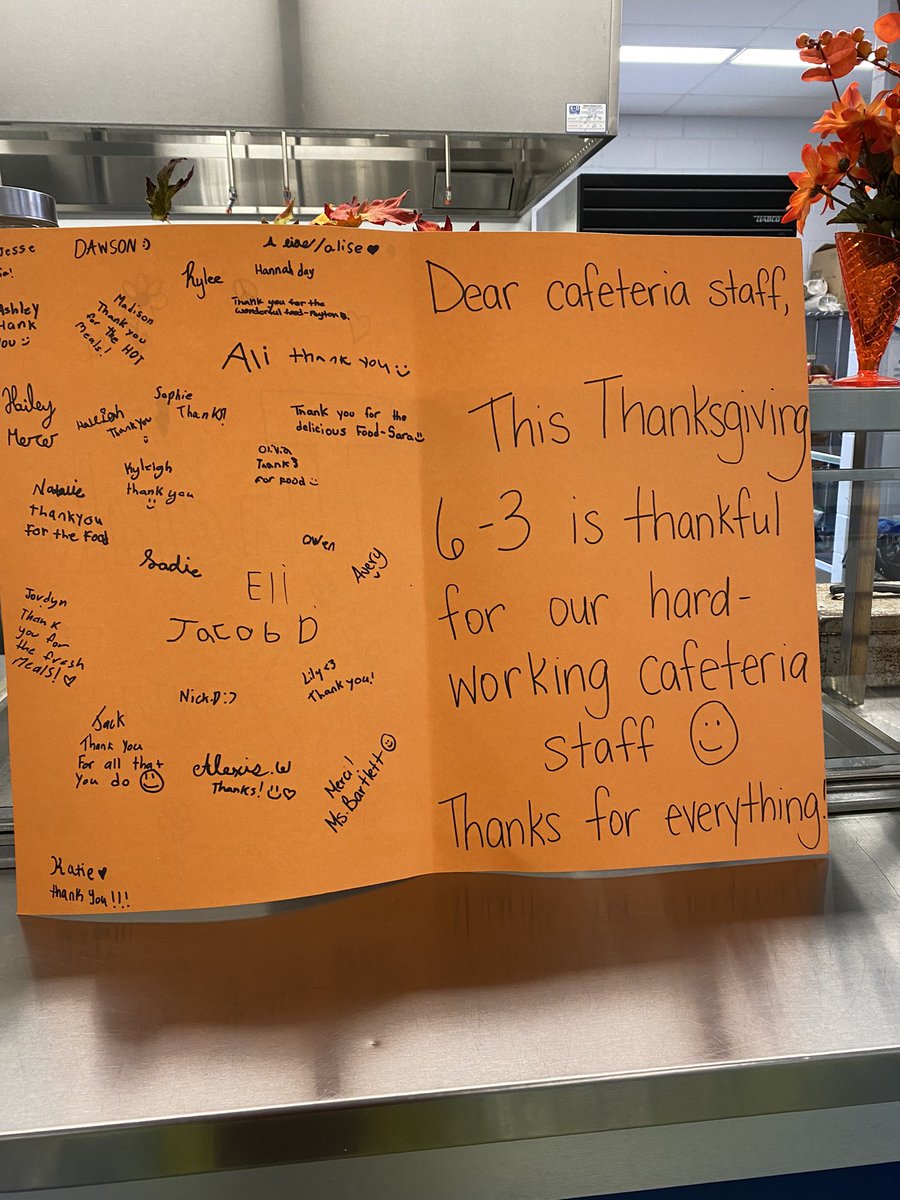 Jesse
DAWSON :)
alise ♥
Rylee
Hannah day
Ashley
Thank
you
Madison
Thank you
for the HOT
Meals!
Thank you for the
wonderful food - Peyton B.
Ali thank you
Hailey
Merci
Halleigh
Thank you
Sophie
Thanks
Thank you for the
delicious Food - Sara
Kyleigh
thank you
Olivia
Thanks
for food
Natalie
thank you
for the food
Sadie
Owen
Avery
Eli
Jacob D
Jordyn
Thank
you for
the fresh
Meals! ♡
Nick.D :)
Lily <3
Thank you!
Jack
Thank you
For all that
you do
Alexis.W
Thanks! ♡
Merci!
Ms. Bartlett
Katie ♥
thank you!!!
Dear cafeteria staff,
This Thanksgiving
6-3 is thankful
for our hard-
working cafeteria
staff
Thanks for everything!
HABCO